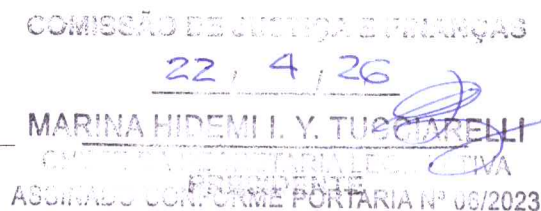 COMISSÃO DE JUSTIÇA E FINANÇAS
22 / 4 / 26
MARINA HIDEMI I. Y. TUCCIARELLI
PRESIDENTE
ASSINADO CONFORME PORTARIA Nº 06/2023